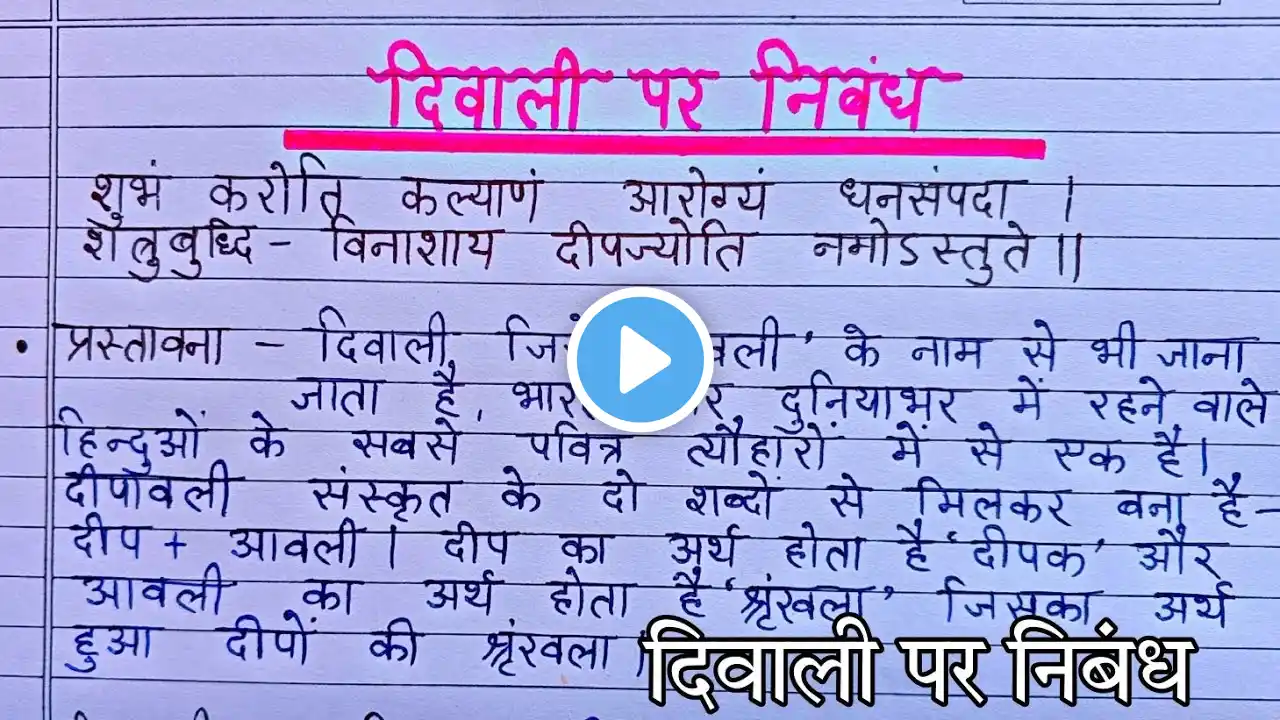 दिवाली पर निबंध
शुभं करोति कल्याणं आरोग्यं धनसंपदा ।
शत्रुबुद्धि - विनाशाय दीपज्योति नमोऽस्तुते ॥
• प्रस्तावना - दिवाली, वली' के नाम से भी जाना
जाता है, दुनियाभर में रहने वाले
हिन्दुओं के सबसे पवित्र त्यौहारों में से एक है।
दीपावली संस्कृत के दो शब्दों से मिलकर बना है-
दीप + आवली । दीप का अर्थ होता है 'दीपक' और
आवली का अर्थ होता है 'श्रृंखला' जिसका अर्थ
हुआ दीपों की श्रृंखला ।
दिवाली पर निबंध